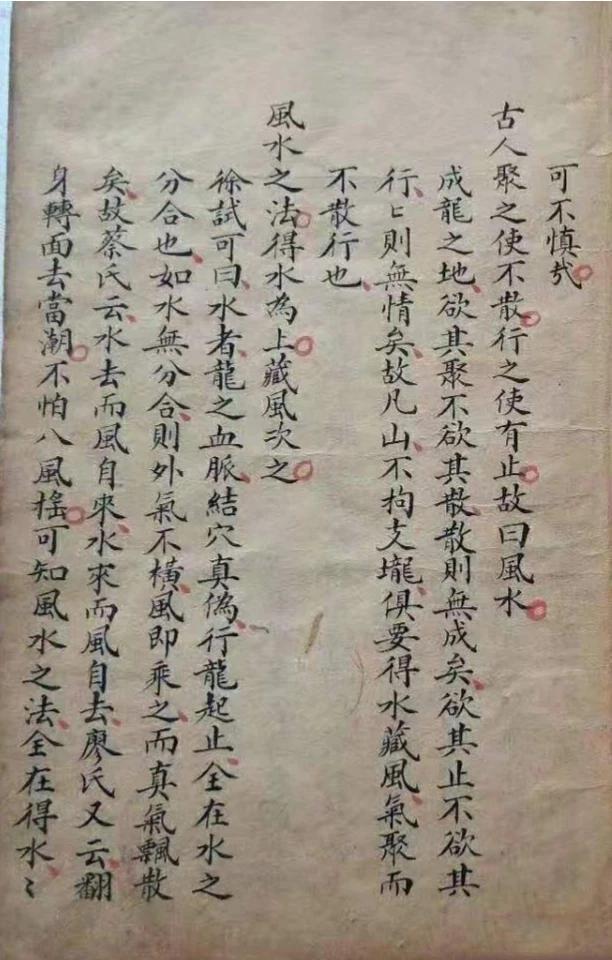 可不慎哉
古人聚之使不散。行之使有止。故曰風水。
成龍之地、欲其聚不欲其散、散則無成矣、欲其止不欲其
行、〻則無情矣、故凡山、不拘支壠、俱要得水藏風、氣聚而
不散行也
風水之法。得水為上。藏風次之。
徐試可曰、水者、龍之血脈、結穴真偽、行龍起止、全在水之
分合也、如水無分合、則外氣不橫、風即乘之、而真氣飄散
矣、故蔡氏云、水去而風自來、水來而風自去、廖氏又云、翻
身轉面去當潮。不怕八風搖。可知風水之法、全在得水、〻